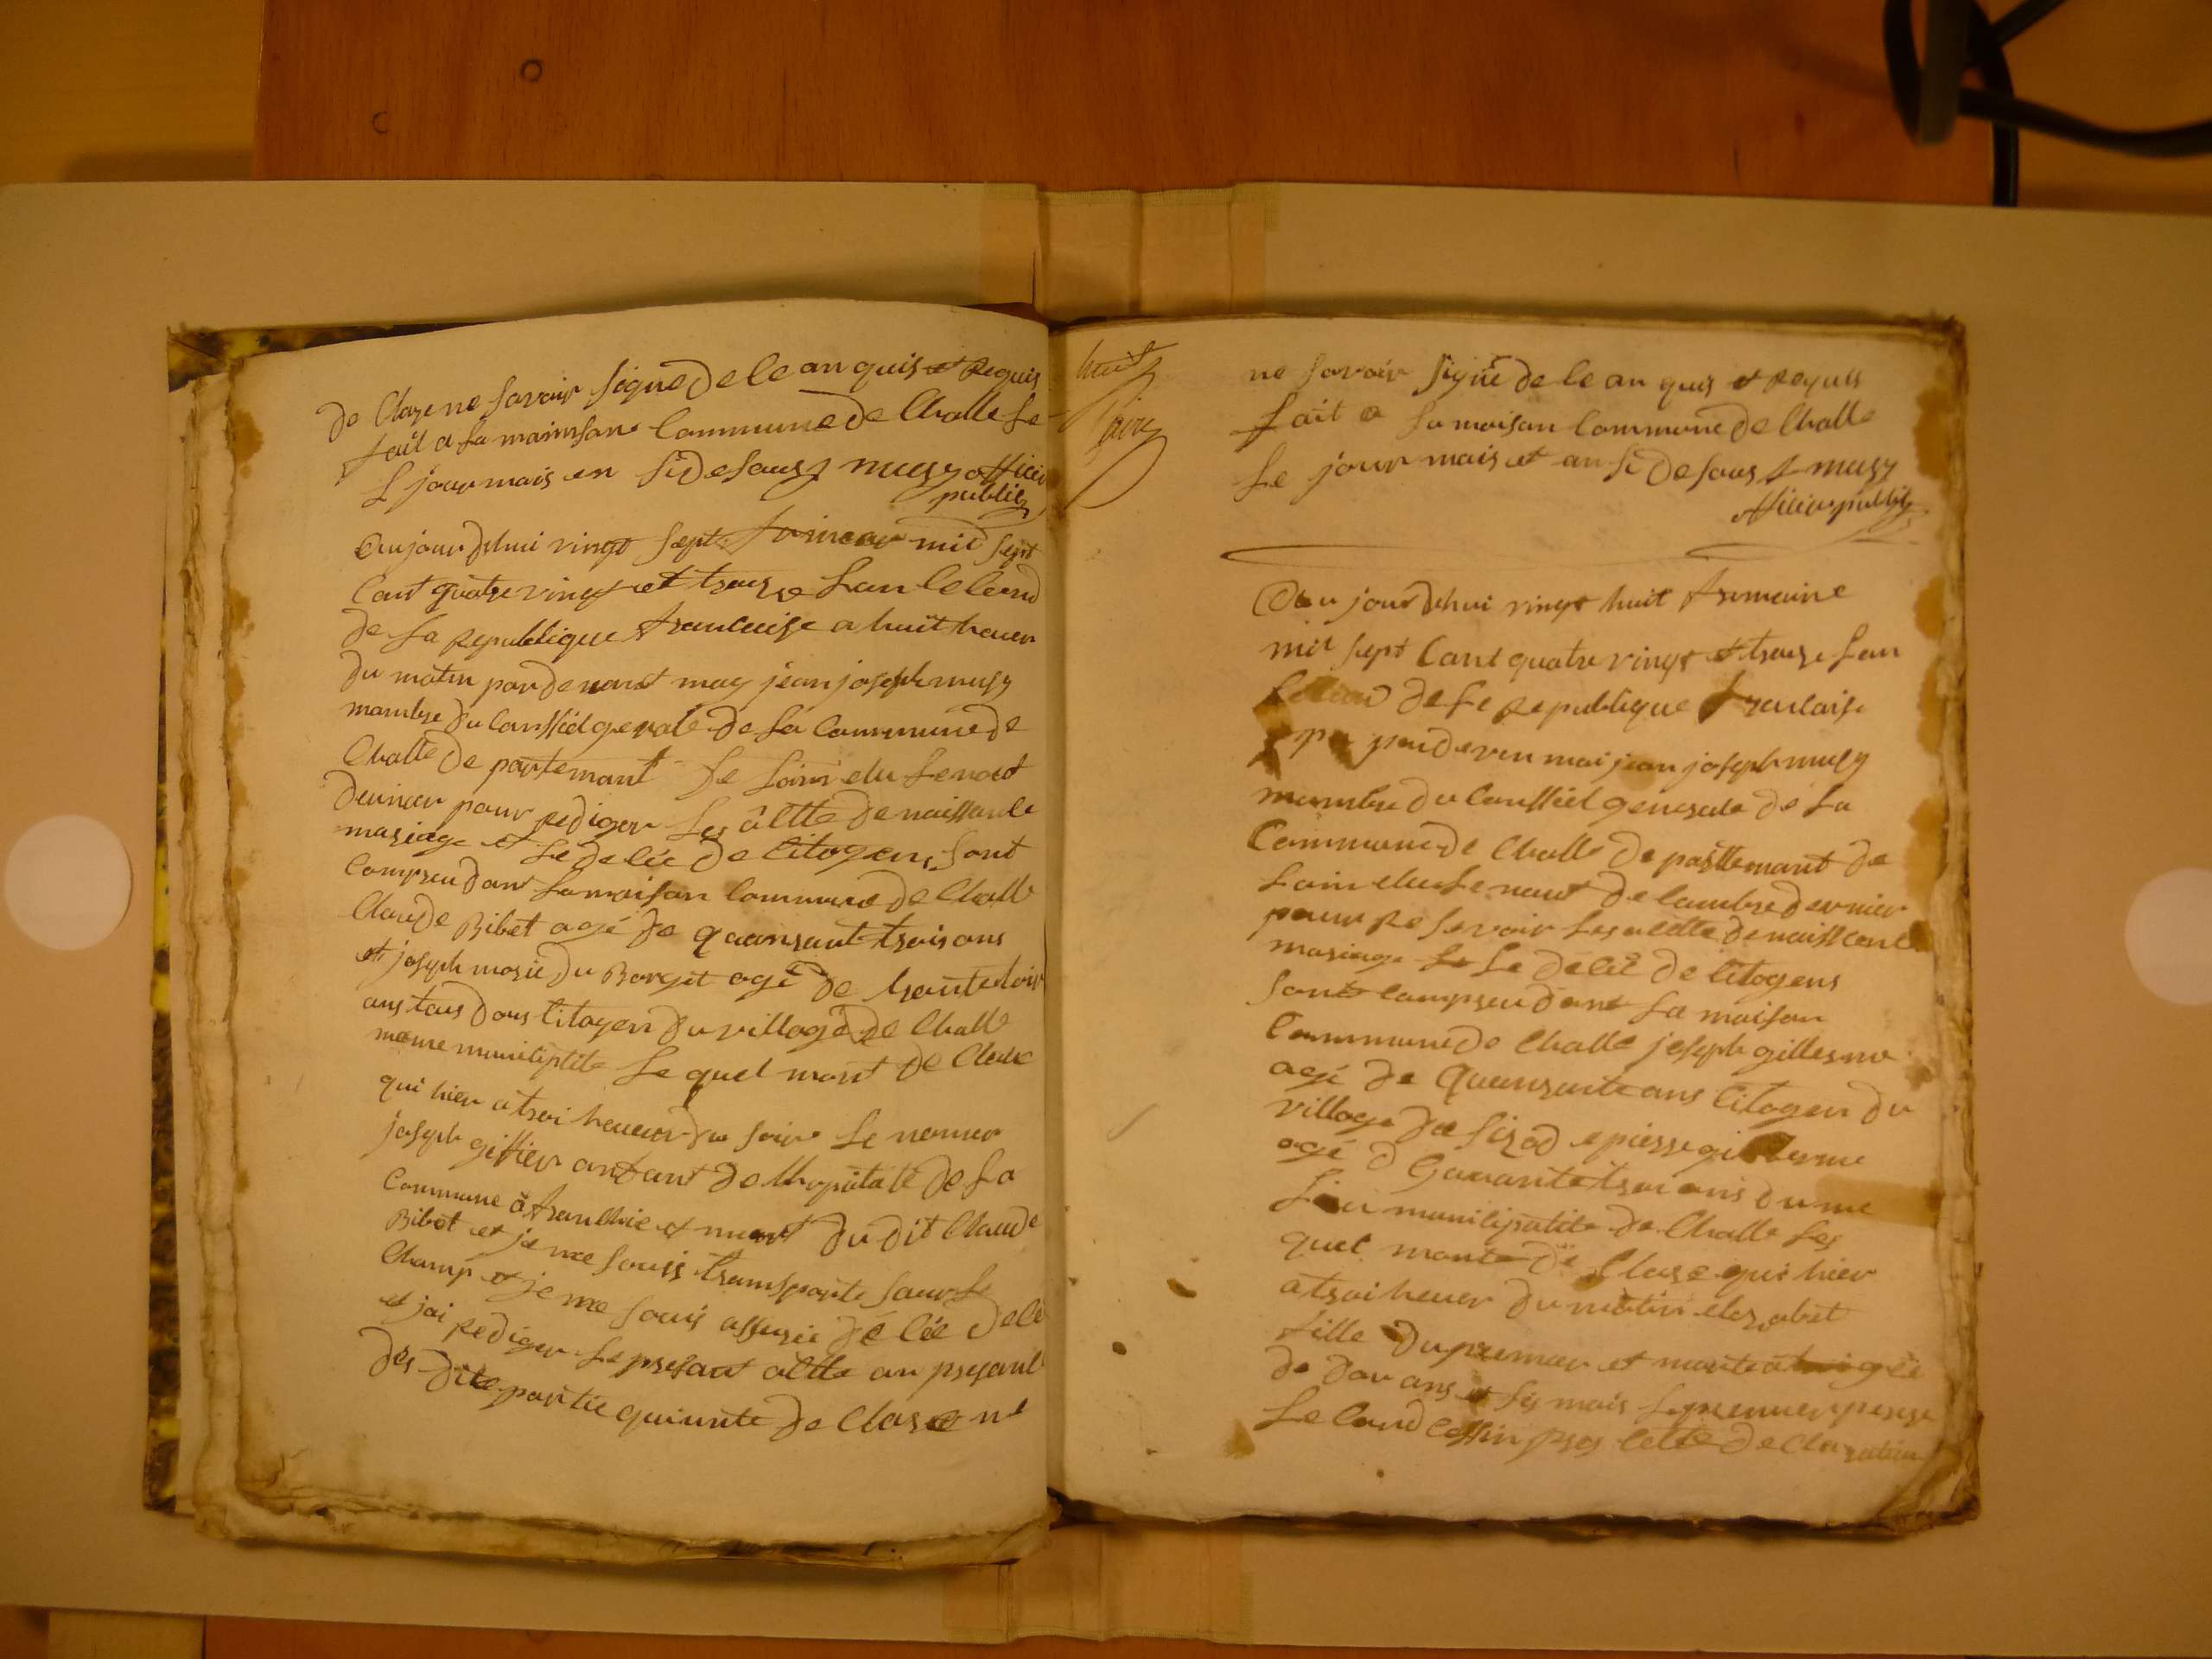 de Clare ne savoir signe de le anquis et Requis
fait a la mainsan Commune de Challe Le
L jour mais en si desaus J musy officier
public
aujourdhui vingt sept frimear mid sept
Cant quatre vingt et traize Lan le Cond
de La Republique francaise a huit heuer
du matin pardevant may jean joseph musy
mambre du Canssiel gerale de La Commune de
Challe de partemant de Lain elu Le nout
dernier pour rediger Les altte de naissance
mariage et Le de Cée de Citogens, sont
Compreu dans La maison Commune de Challe
Claude Bibet agé de quaransant trois ans
et joseph marie du Borget agé de trante
ans tous dous Citogen du village de Challe
meme municiptite Le quel mont de Clare
qui hier a troi heuer du soire Le nomer
joseph giffier anfant de Lhopitale de La
Commune a et mort du dit Claude
Bibet et je me souis transporte sour Le
Champ et je me souis assurée de Cée dele
et jai rediger Le presant altte an presance
des dite partie qui unte de Clare ne
huit
ne savoir signe de le an quis et Requis
fait a La maison Commune de Challe
Le jour mais et an si desous J musy
officier public
aujourdhui vingt huit frimaire
mil sept Cant quatre vingt et traize Lan
de Le Republique francaise
pardeven mai jean joseph musy
mambre du Canssiel generale de La
Commune de Challe de parttemant de
Lain elu Le nout de dernier
pour Re sevoir Les altte de naissance
mariage Le Le de Cée de Citogens
sont Compreu dans La maison
Commune de Challe joseph gillerme
agé de quaransante ans Citogen du
village de e pierre gillerme
agé d Garante troi ans du me
Lieu municipalite de Challe Les
quel monte de Clare qui hier
a troi heuer du matin elezabet
fille du premier et morte
de dou ans et sis mais Le premier
Le Cond Cette de Claration